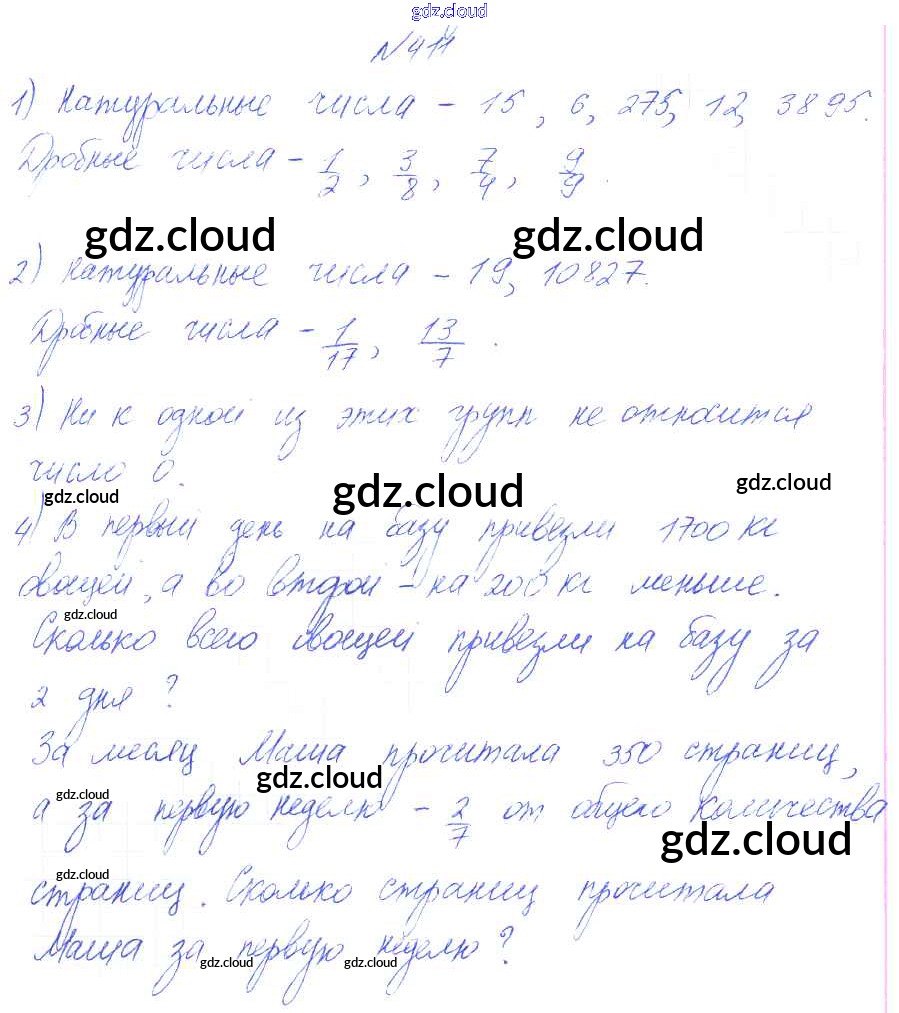 gdz.cloud
№411
1) Натуральные числа - 15, 6, 275, 12, 3895.
Дробные числа - 1/2, 3/8, 7/4, 9/9.
gdz.cloud gdz.cloud
2) Натуральные числа - 19, 10827.
Дробные числа - 1/17, 13/7.
3) Ни к одной из этих групп не относится
число 0.
gdz.cloud gdz.cloud gdz.cloud
4) В первый день на базу привезли 1700 кг
овощей, а во второй - на 200 кг меньше.
gdz.cloud
Сколько всего овощей привезли на базу за
2 дня?
За месяц Маша прочитала 350 страниц,
gdz.cloud gdz.cloud
а за первую неделю - 2/7 от общего количества
gdz.cloud
gdz.cloud
страниц. Сколько страниц прочитала
Маша за первую неделю?
gdz.cloud gdz.cloud